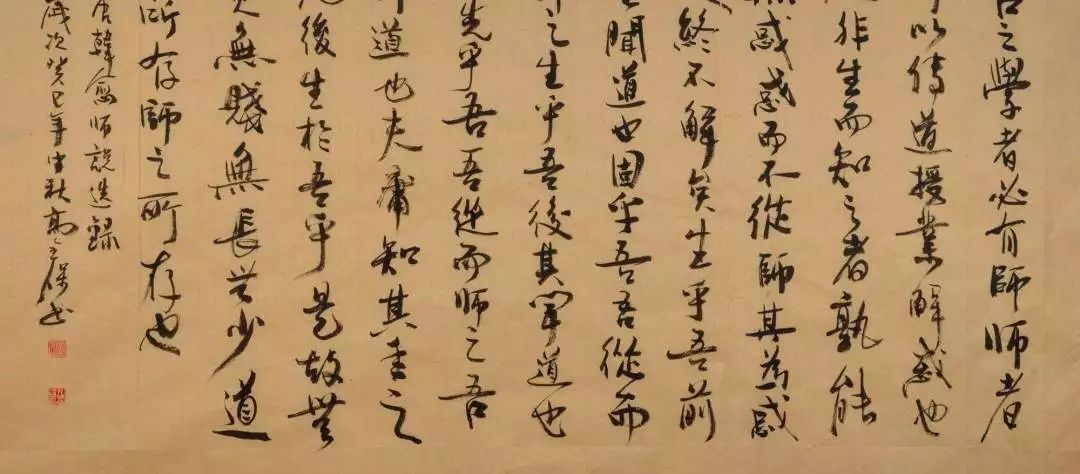 之學者必有師師者
以傳道授業解惑也
非生而知之者孰能
惑惑而不從師其為惑
終不解矣生乎吾前
聞道也固乎吾吾從而
之生乎吾後其聞道也
先乎吾吾從而師之吾
道也夫庸知其年之
後生於吾乎是故無
無賤無長無少道
所存師之所存也
唐韓愈師說選錄
歲次癸巳年中秋高保書